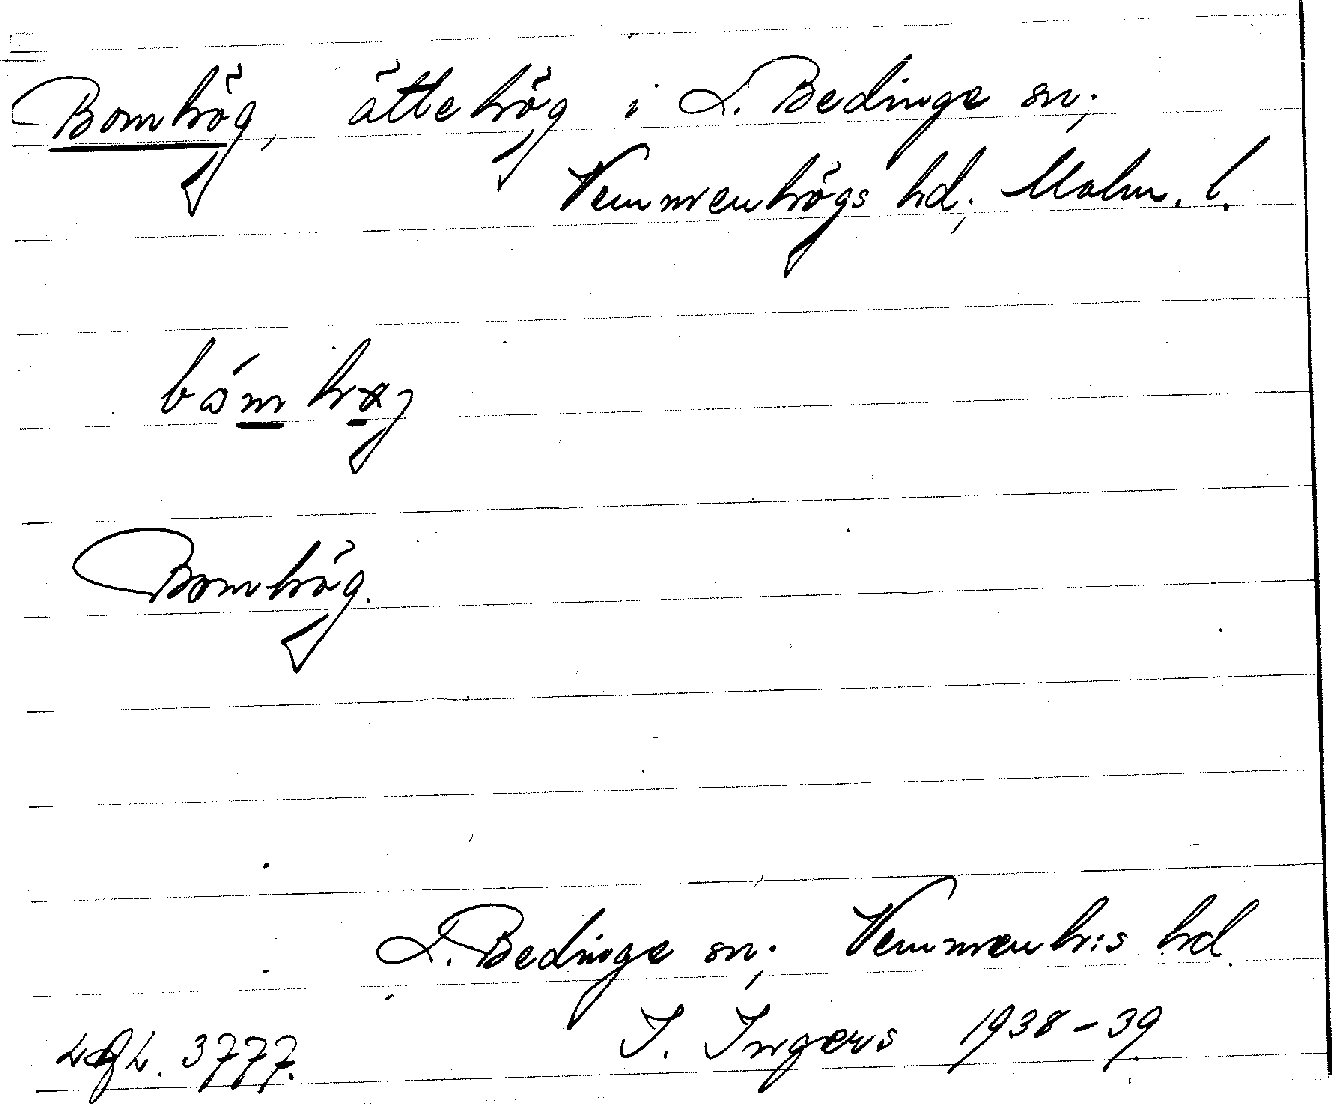 Bomhög, ättehög i L. Bedinge sn;
Vemmenhögs hd; Malm. l.
bómhøj
Bomhög.
L. Bedinge sn; Vemmenh:s hd.
3777. I. Ingers 1938-39